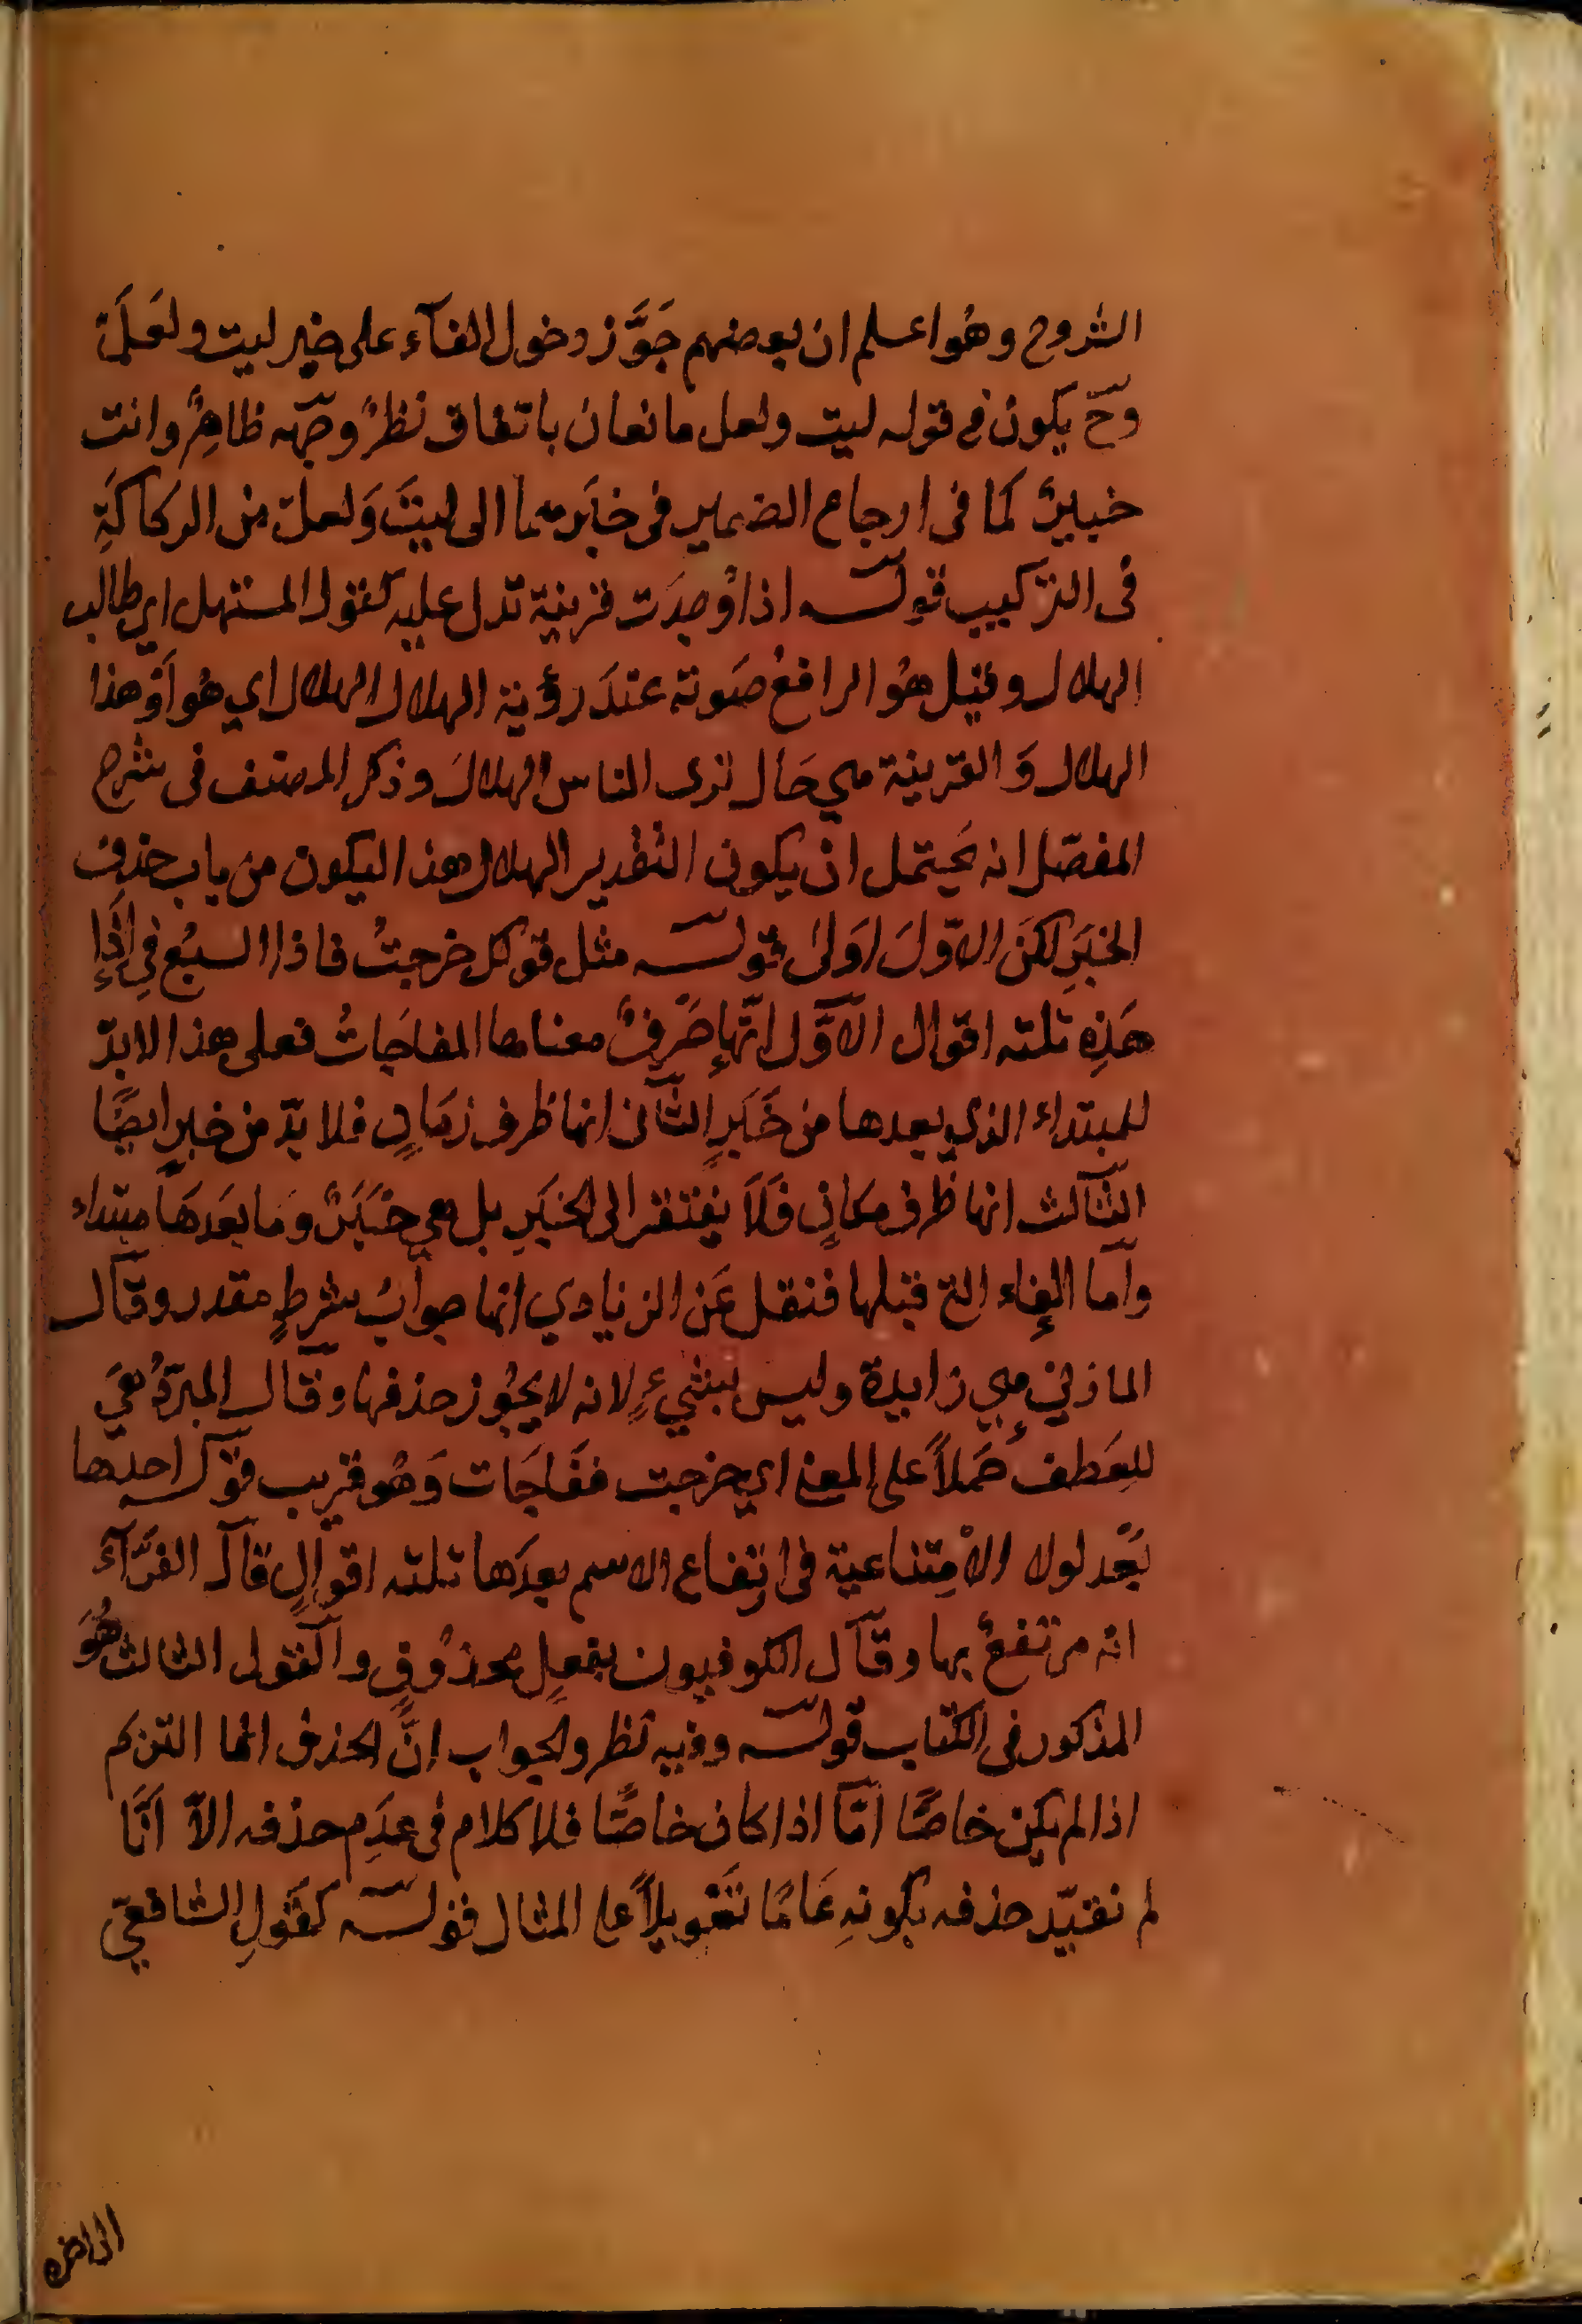 الشروح وهُوا علم ان بعضهم جَوَّز دخول الفآء على خبر ليت ولعَلَّ
وحّ يكون في قوله ليت ولعل مانعان باتفاق نظرٌ وجّهه ظاهِرٌ وانت
خبيرٌ كما في ارجاع الضمير في خبَرهما الى ليتَ وَلعلّ من الركاكَةِ
في التركيب قولـه اذا وُجِدَت قرينة تدل عليه كقول المستهل اي طالب
الهلال وقيل هُو الرافعُ صَوته عندَ رؤية الهلال الهلال اي هُو اَوْ هذا
الهلال وَالقرينة هي حَال نرى الناس الهلالَ وذكر المصنف في شرح
المفصّل انه يَحتمل ان يكون التقدير الهلال هذا ليكون من باب حذف
الخبَرِ لكنَ الاوّلَ اَولىٰ قولـه مثل قولك خرجتُ فاذا السبُع في اذَا
هَذِه ثلثه اقوال الآوَّل انّها حَرفٌ معناها المفاجَاتُ فعلى هذا لابدّ
للمبتداء الذي بعدها من خَبَرٍ الثآنى انها ظرف زمَانٍ فلا بدّ من خبرٍ ايضًا
الثآلث انها ظرف مكانٍ فَلَا يفتقر الى الخبَرِ بل هي خبَرٌ وَمَا بعَدهَا مبتداء
وآما الفاء التى قبلها فنقل عَن الزيادي انها جوابُ شرطٍ مقدر وقآل
المازني هي زايدة وليس بشيءٍ لانه لا يجُوز حذفها وقآل المبرّدُ هيَ
للعَطف حَملاً على المعنى اي خرجت ففَاجَات وَهُو قريب قولـه احدها
بَعْد لولا الاْمِتناعية في ارتِفاع الاسم بعدَها ثلثه اقوالٍ قآل الفرَّآءُ
انه مرتفعٌ بها وقآل الكوفيون بفعلٍ محذوُفٍ وآلقول الثالث هُوَ
المذكور في الكتاب قولـه وفيه نظر والجواب انَّ الحذف انما التزم
اذا لم يكن خاصًّا امّا اذا كان خاصًّا فلا كلام في عدَمِ حذفه الاّ اَنَّا
لم نقيّد حذفه بكونهِ عَامًّا تَعْوِيلاً على المثال قولـه كقَولِ الشافعيّ